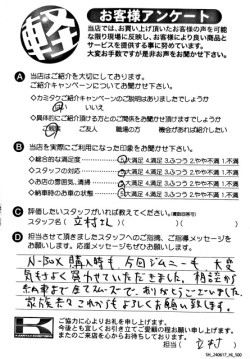 軽
お客様アンケート
当店では、お買い上げ頂いたお客様の声を可能
な限り現場に反映し、お客様により良い商品と
サービスを提供する事に努めています。
大変お手数ですが是非お声をお聞かせ下さい。
A 当店はご紹介を大切にしております。
ご紹介キャンペーンについてお聞かせ下さい。
◇カミタケご紹介キャンペーンのご説明はありましたでしょうか
はい いいえ
◇具体的にご紹介頂ける方とのご関係をお聞かせ頂けますでしょうか
ご親業 ご友人 職場の方 機会があれば紹介したい
B 当店を実際にご利用になった印象をお聞かせ下さい。
◇総合的な満足度 5.大満足 4.満足 3.ふつう 2.やや不満 1.不満
◇スタッフの対応 5.大満足 4.満足 3.ふつう 2.やや不満 1.不満
◇お店の雰囲気、清掃 5.大満足 4.満足 3.ふつう 2.やや不満 1.不満
◇納車時のお車の状態 5.大満足 4.満足 3.ふつう 2.やや不満 1.不満
C 評価したいスタッフがいれば教えてください。(複数回答可)
スタッフ名( 立村さん )スタッフ名( )
D 担当させて頂きましたスタッフへのご指摘、ご指導メッセージを
お願いします。応援メッセージもぜひお願いします。
N-BOX購入時も今回ジムニーも大変
気もちよく買わせていただきました。相談から
納車まで全てスムーズで、ありがとうございました。
家族共々これからもよろしくお願い致します。
ご協力に心よりお礼を申し上げます。
今後とも宜しくお引き立てご愛顧の程お願い申し上げます。
またのご来店を心からお待ちしております。
担当( 立村 )